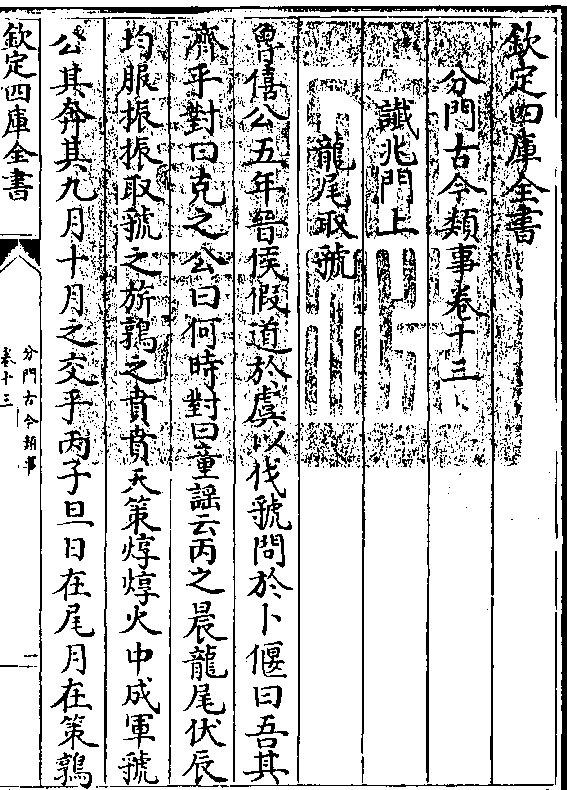 欽定四庫全書
分門古今類事卷十三
讖兆門上
龍尾取虢
魯僖公五年晉侯假道於虞以伐虢問於卜偃曰吾其
濟乎對曰克之公曰何時對曰童謡云丙之晨龍尾伏辰
均服振振取虢之旂鶉之賁賁天策焞焞火中成軍虢
公其奔其九月十月之交乎丙子旦日在尾月在策鶉
欽定四庫全書
分門古今類事
卷十三
一